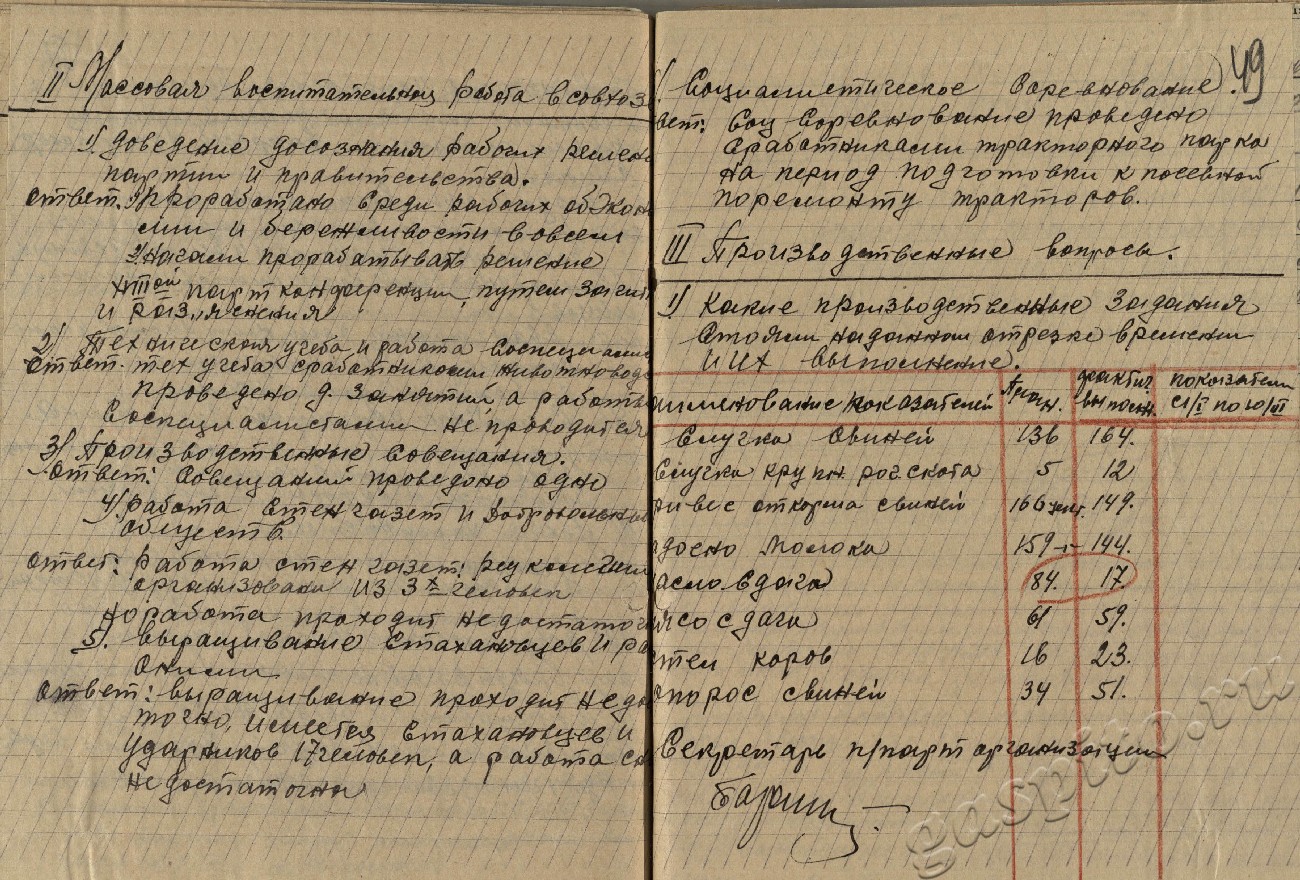 II Массовая воспитательная работа в совхоз
1) доведение досознания рабочих решен
партии и правительства.
ответ. 1) проработано среди рабочих обэкон
мии и бережливости вовсем
2) Начали прорабатывать решение
XVIII ой партконференции, путем зачит
и раз"яснения
2) Техническая учеба и работа соспециалис
Ответ. тех учеба сработниками животновод
проведено д. занятий, а работы
соспециалистами не проходится
3) Производственные совещания.
ответ: Совещаний проведено одно
4) работа стенгазет и добровольных
обществ.
ответ: работа стенгазет: редколегия
организована из 3х человек
но работа проходит недостаточ
5). выращивание стахановцев и ра
с ними
ответ: выращивание проходит недо
точно, имеется стахановцев и
ударников 17 человек, а работа с н
недостаточна
49
) Социалистическое соревнование.
вет: Соц Соревнование проведено
сработниками тракторного парка
на период подготовки к посевной
поремонту тракторов.
III Производственные вопросы.
1) Какие производственные задания
стояли наданном отрезке времени
и их выполнение.
именование показателей план. фактич выполн. показатели с 1/I по 10/III
Случка свиней 136 164.
Случка крупн. рог. скота 5 12
ривес откорма свиней 166 цент. 149.
адоено молока 159 -"- 144.
асло сдача 84. 17.
ясо сдача 61 59.
тел коров 18 23.
опорос свиней 34 51.
Секретарь п/парторганизации
gaspito.ru